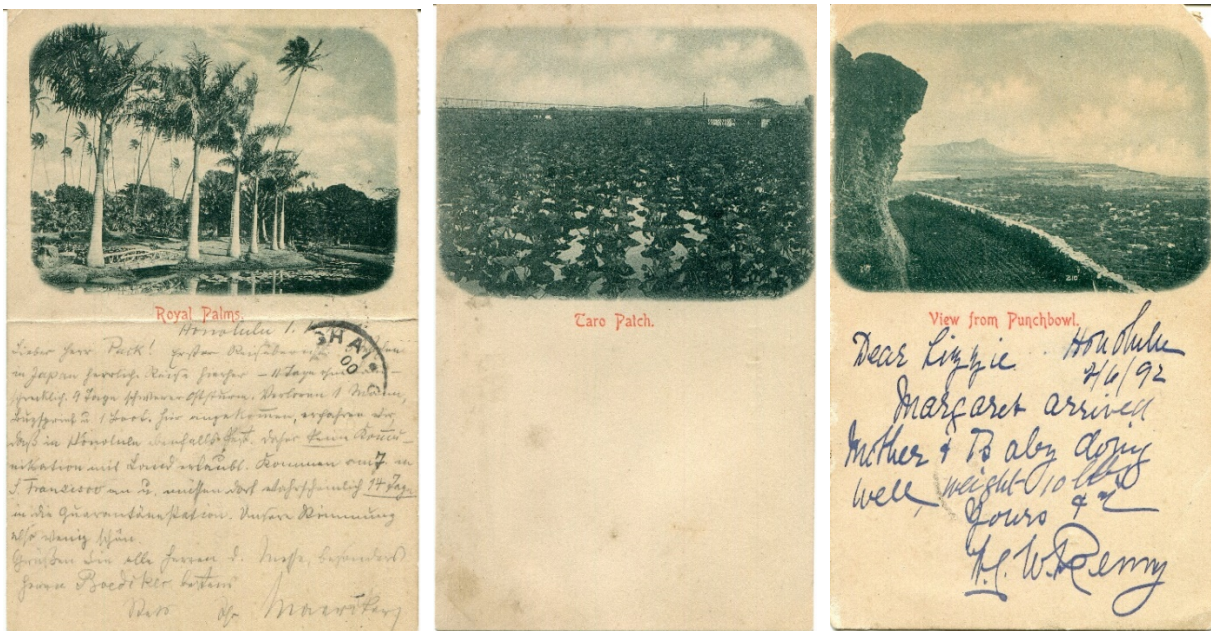 Royal Palms.
Honolulu 1.
SHAI
00
Lieber Herr Pack! Erster
in Japan herrliche Reise hierher – 11 Tage
schrecklich. 9 Tage schwerer Oststurm. Verloren 1 Mann,
Bugspriet u. 1 Boot. Hier angekommen, erfahren wir,
daß in Honolulu ebenfalls Pest, daher kein Kommu-
nikation mit Land erlaubt. Kommen am 7. in
S. Francisco an u. müssen dort wahrscheinlich 14 Tage
in die Quarantänestation. Unsere Stimmung
also wenig schön.
Grüßen Sie alle Herren d. Messe, besonders
Herrn Boediker bestens
Stets Ihr
Taro Patch.
View from Punchbowl.
210
Dear Lizzie Honolulu
2/6/92
Margaret arrived
Mother & Baby doing
well, weight 10 lbs
Yours &c
W. Renny